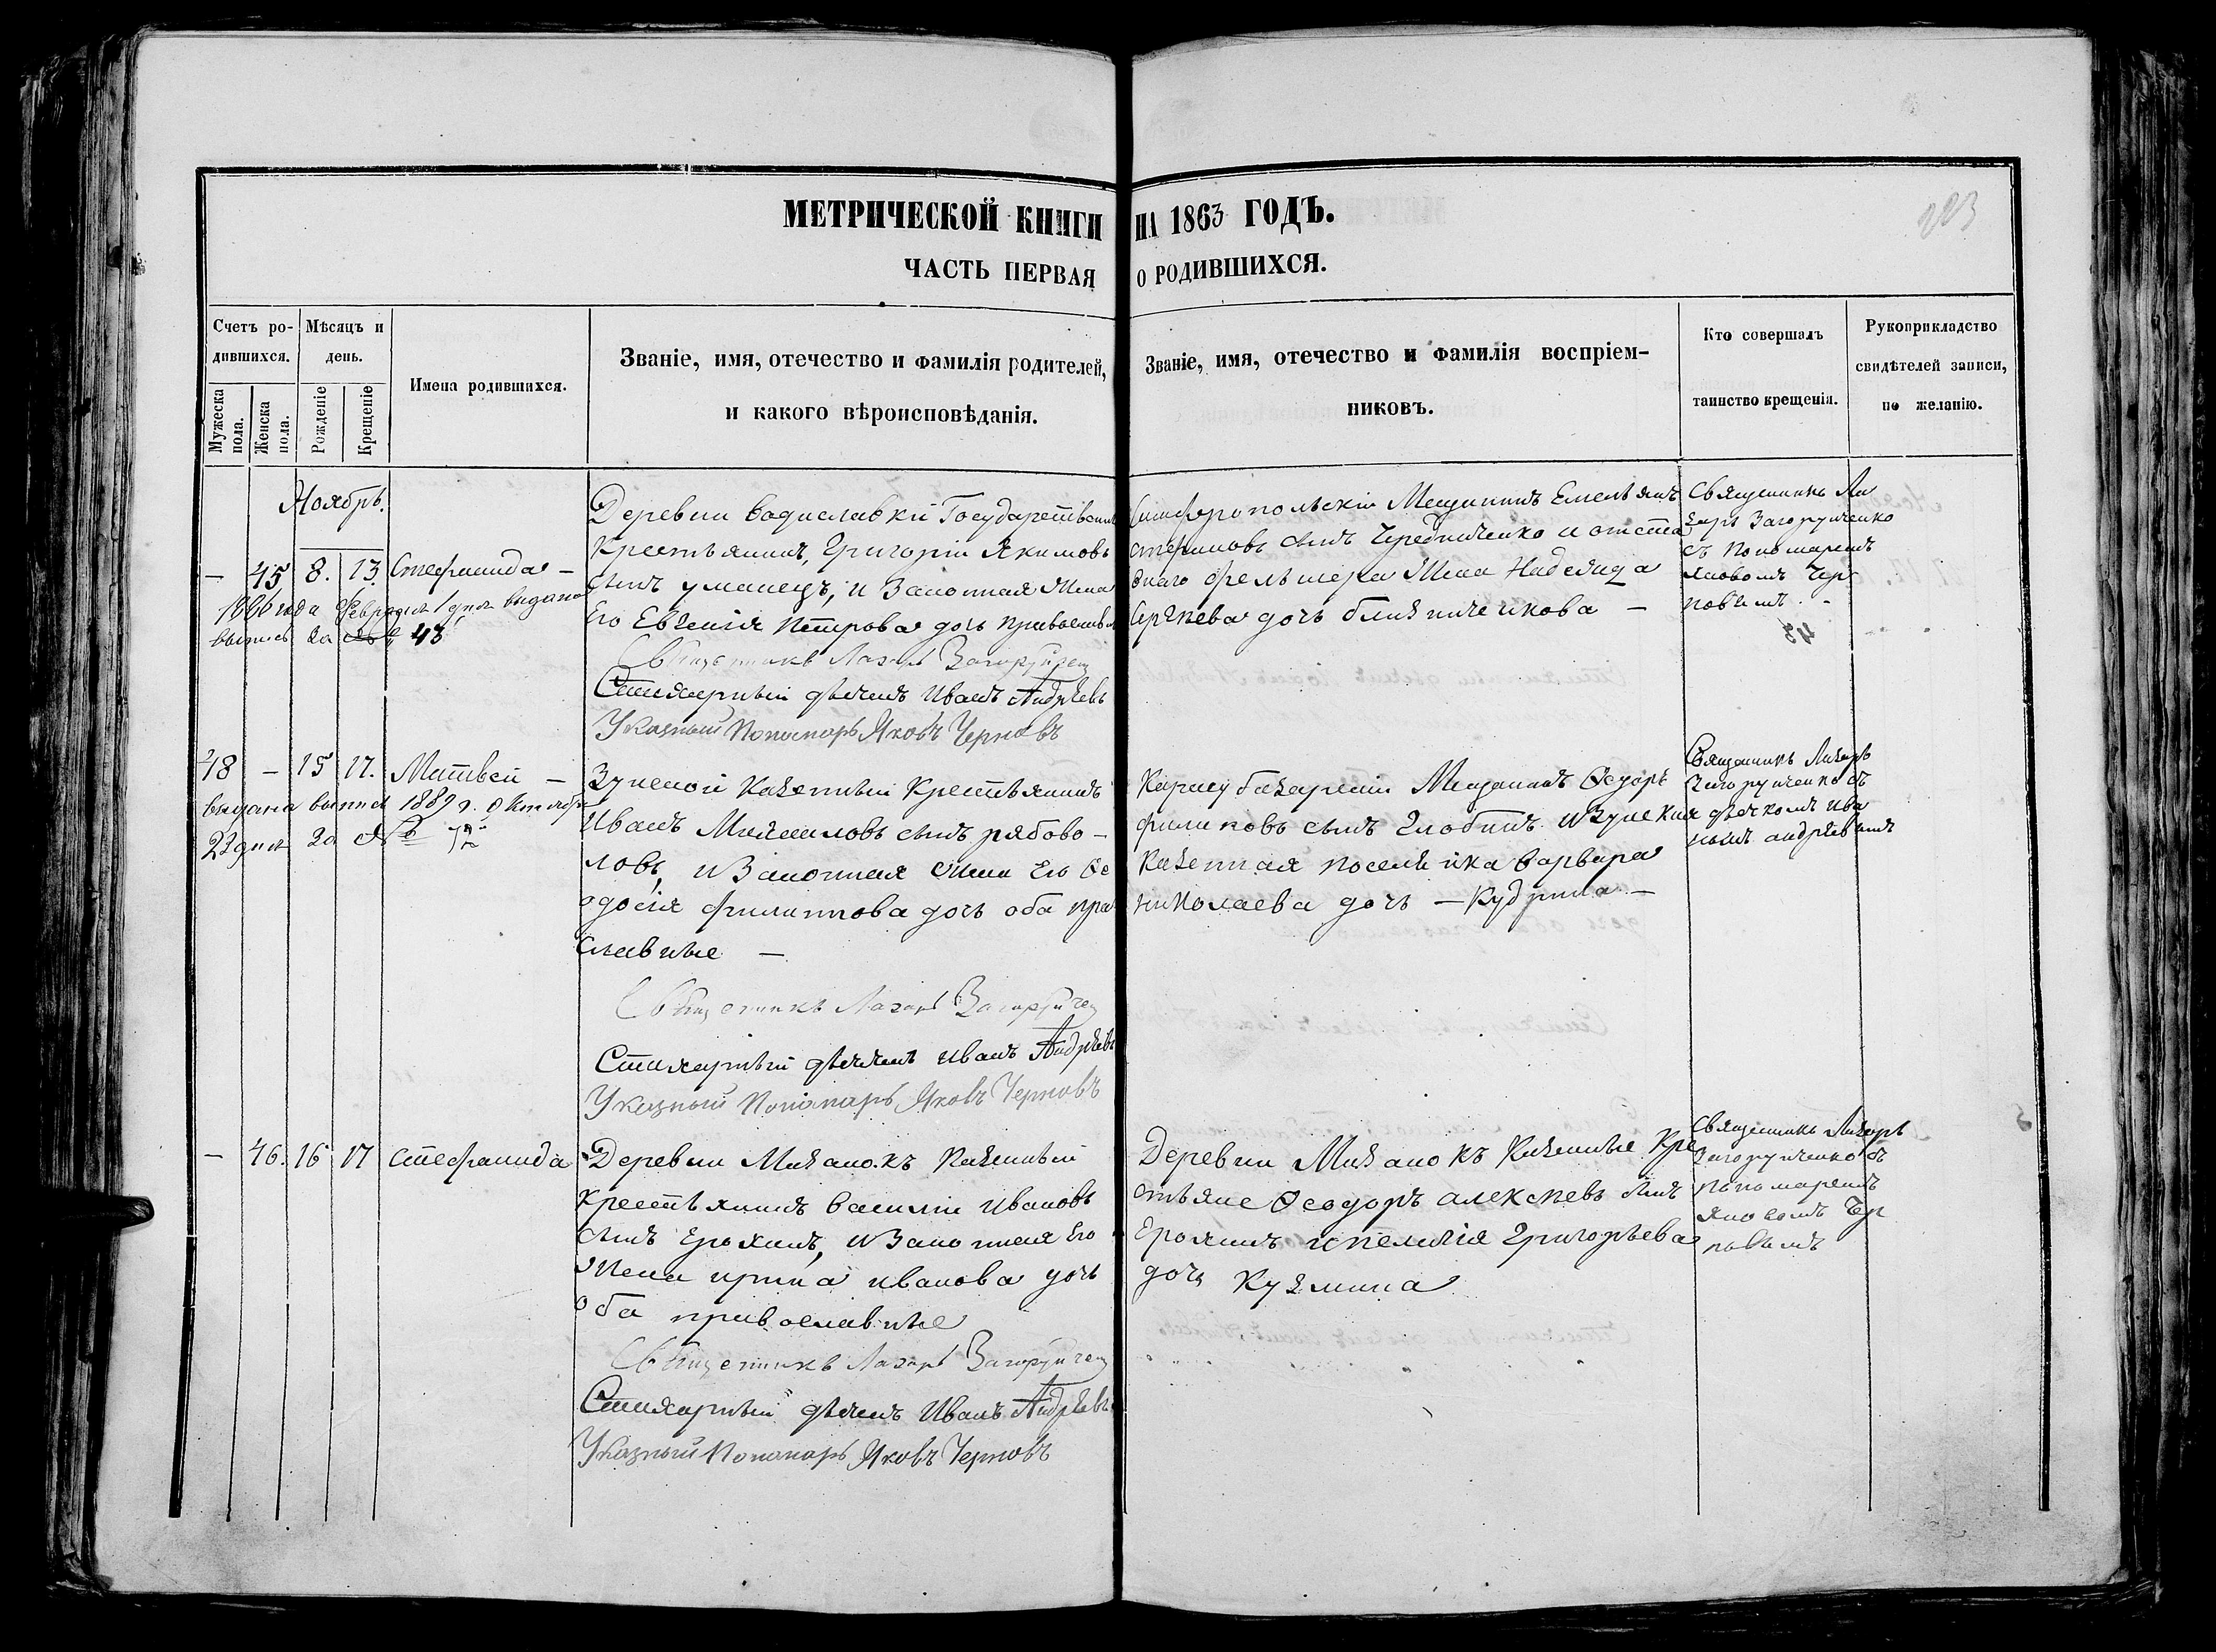 МЕТРИЧЕСКОЙ КНИГИ НА 1863 ГОДЪ.
ЧАСТЬ ПЕРВАЯ О РОДИВШИХСЯ.
Счетъ родившихся.
Мужеска пола.
Женска пола.
Мѣсяцъ и день.
Рожденіе
Крещеніе
Имена родившихся.
Званіе, имя, отечество и фамилія родителей,
и какого вѣроисповѣданія.
Званіе, имя, отечество и фамилія воспріем-
никовъ.
Кто совершалъ
таинство крещенія.
Рукоприкладство
свидѣтелей записи,
по желанію.
Ноябрь.
— 45 8. 13. Стефанида —
1886 года Февраля 1 дня выдана
выпись за № 43
Деревни Государствен
Крестьянинъ, Григорій Якимовъ
сынъ уманецъ, и Законная Жена
Его Евгенія Петрова дочь
Священникъ Лазарь
Стихарный дьячекъ Иванъ Андрѣевъ
Указный Пономарь Яковъ Черновъ
Симферопольскій Мещанинъ Емельянъ
сынъ Чередниченко и отста
внаго фельшера Жена Надежда
Сергѣева дочь близниченкова —
Священникъ Ла
зарь Загорученко
съ пономаремъ
Яковомъ Чер
новымъ. -
43
48 — 15 17. Матвей —
выдана выпись 1889 г. Октября
22 дня за №
Зуйской Казенный Крестьянинъ
Иванъ Михаиловъ сынъ рябово-
ловъ, и Законная Жена Его Ѳе
одосія филиппова дочь оба пра
славные —
Священникъ Лазарь
Стихарный дьячекъ Иванъ Андрѣевъ
Указный Пономарь Яковъ Черновъ
Карасубазарскій Мещанинъ Ѳедоръ
филиповъ сынъ Глобинъ и Зуйская
Казенная поселянка варвара
николаева дочь —
Священникъ Лазарь
Загорученко съ
дьячкомъ Ива
номъ андрѣевымъ
— 46. 16 17 стефанида
Деревни Мазанокъ Казенный
крестьянинъ василій Ивановъ
сынъ Ерохинъ, и Законная Его
Жена ирина иванова дочь
оба православные
Священникъ Лазарь
Стихарный дьячекъ Иванъ Андрѣевъ
Указный Пономарь Яковъ Черновъ
Деревни Мазанокъ Казенные Кре
стьяне Ѳеодоръ алексѣевъ сынъ
Ерохинъ и пелагія Григорьева
дочь Кузмина
Священникъ Лазарь
Загорученко съ
пономаремъ
Яковомъ Чер
новымъ